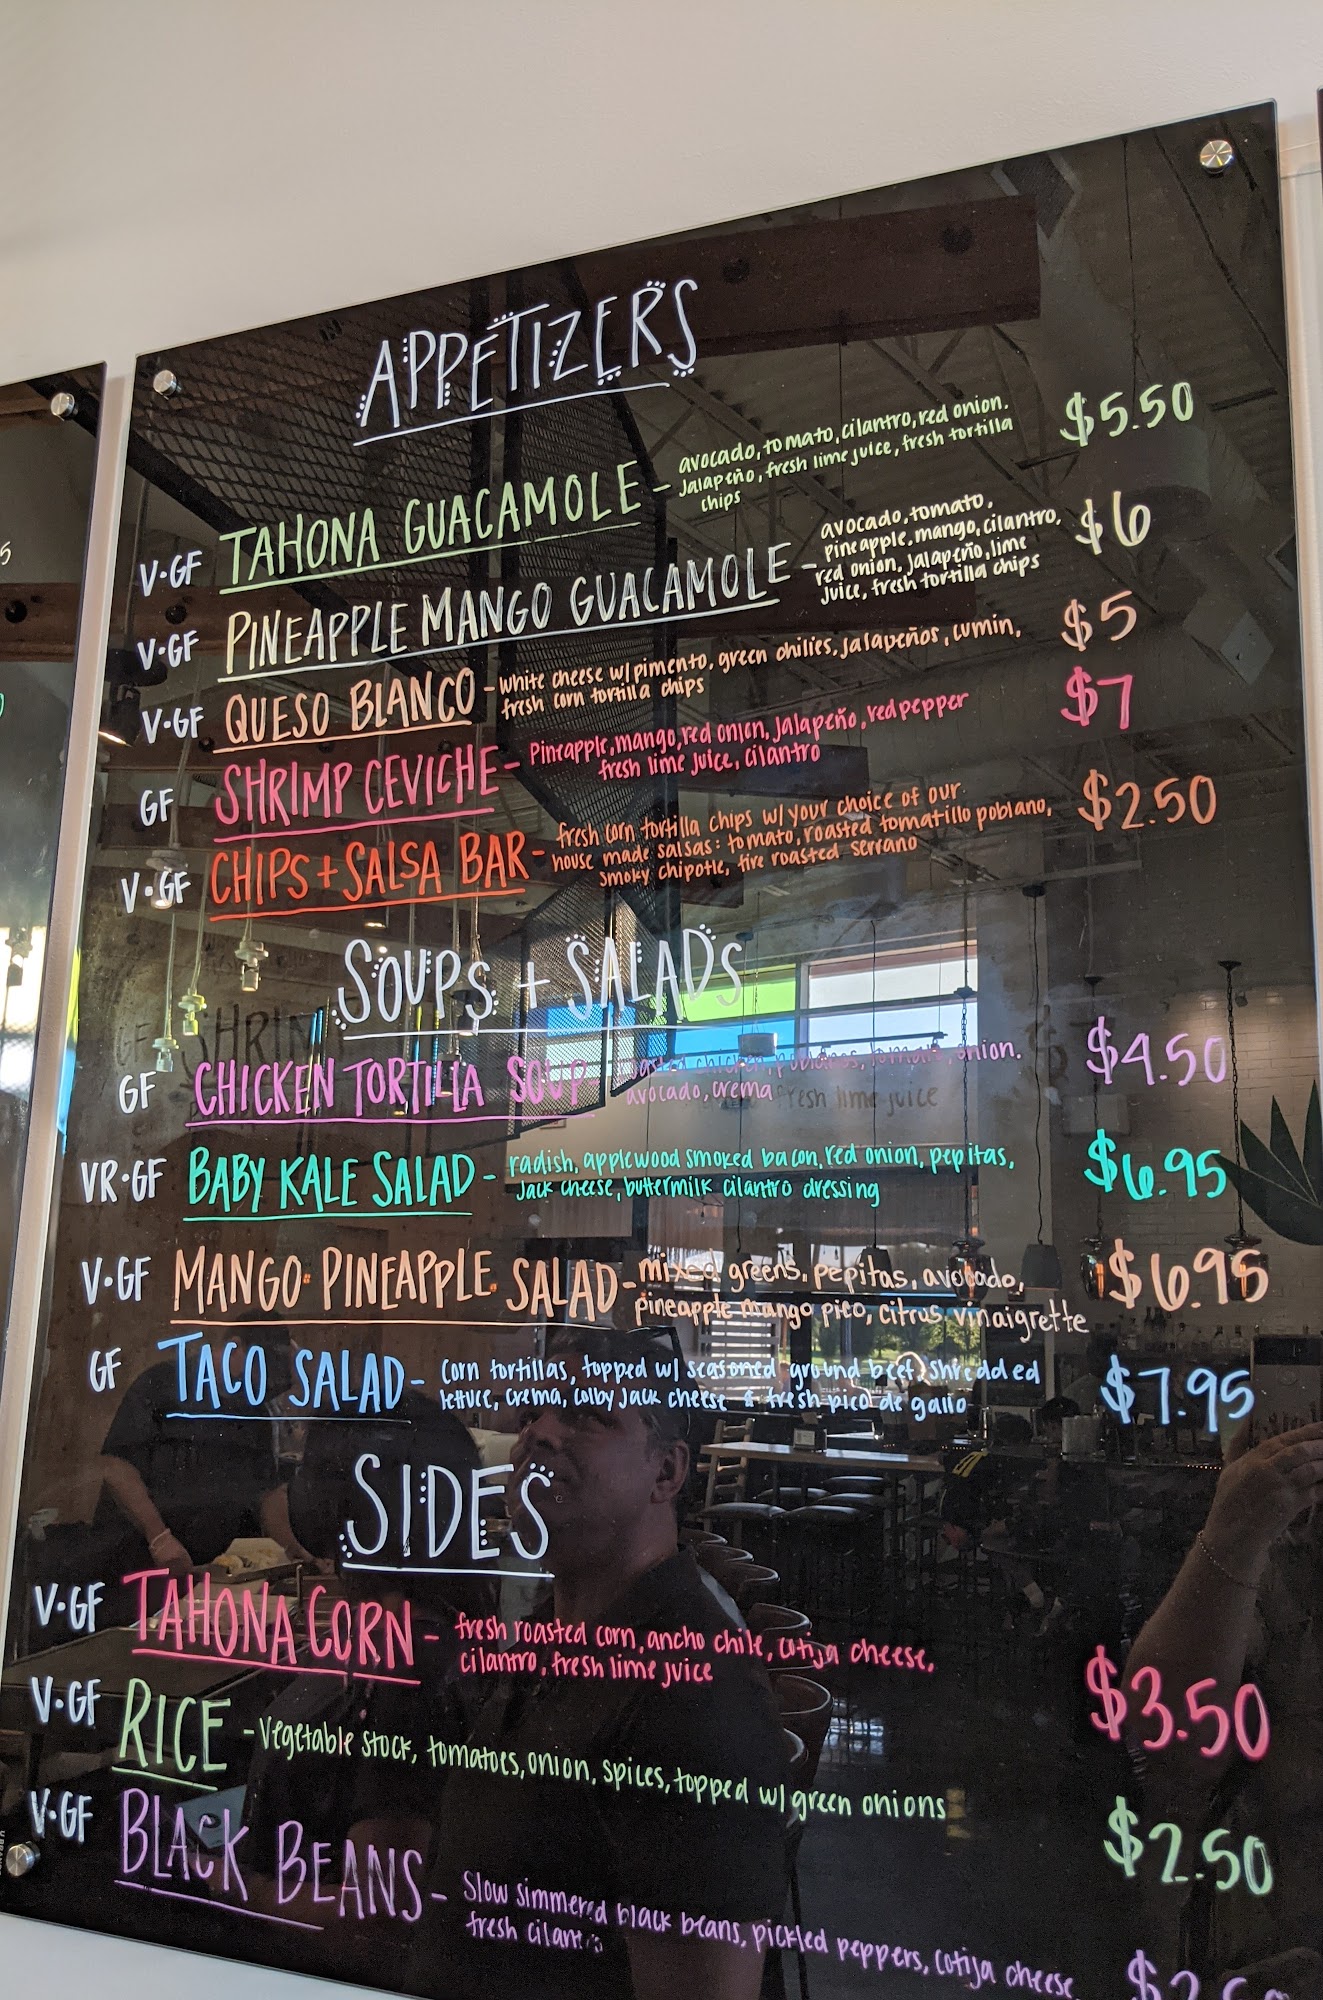 APPETIZERS
V·GF TAHONA GUACAMOLE - avocado, tomato, cilantro, red onion. $5.50
Jalapeño, fresh lime juice, fresh tortilla
chips
V·GF PINEAPPLE MANGO GUACAMOLE - avocado, tomato, $6
pineapple, mango, cilantro,
red onion, jalapeño, lime
juice, fresh tortilla chips
V·GF QUESO BLANCO - white cheese w/ pimento, green chilies, jalapeños, cumin, $5
fresh corn tortilla chips
GF SHRIMP CEVICHE - Pineapple, mango, red onion, jalapeño, red pepper $7
fresh lime juice, cilantro
V·GF CHIPS + SALSA BAR - fresh corn tortilla chips w/ your choice of our $2.50
house made salsas: tomato, roasted tomatillo poblano,
smoky chipotle, fire roasted serrano
SOUPS + SALADS
GF CHICKEN TORTILLA SOUP - roasted chicken, poblanos, tomato, onion. $4.50
avocado, crema
VR·GF BABY KALE SALAD - radish, applewood smoked bacon, red onion, pepitas, $6.95
Jack cheese, buttermilk cilantro dressing
V·GF MANGO PINEAPPLE SALAD - mixed greens, pepitas, avocado, $6.95
pineapple mango pico, citrus vinaigrette
GF TACO SALAD - corn tortillas, topped w/ seasoned ground beef, shredded $7.95
lettuce, crema, colby jack cheese & fresh pico de gallo
SIDES
V·GF TAHONA CORN - fresh roasted corn, ancho chile, cotija cheese, $3.50
cilantro, fresh lime juice
V·GF RICE - Vegetable stock, tomatoes, onion, spices, topped w/ green onions $2.50
V·GF BLACK BEANS - Slow simmered black beans, pickled peppers, cotija cheese,
fresh cilantro